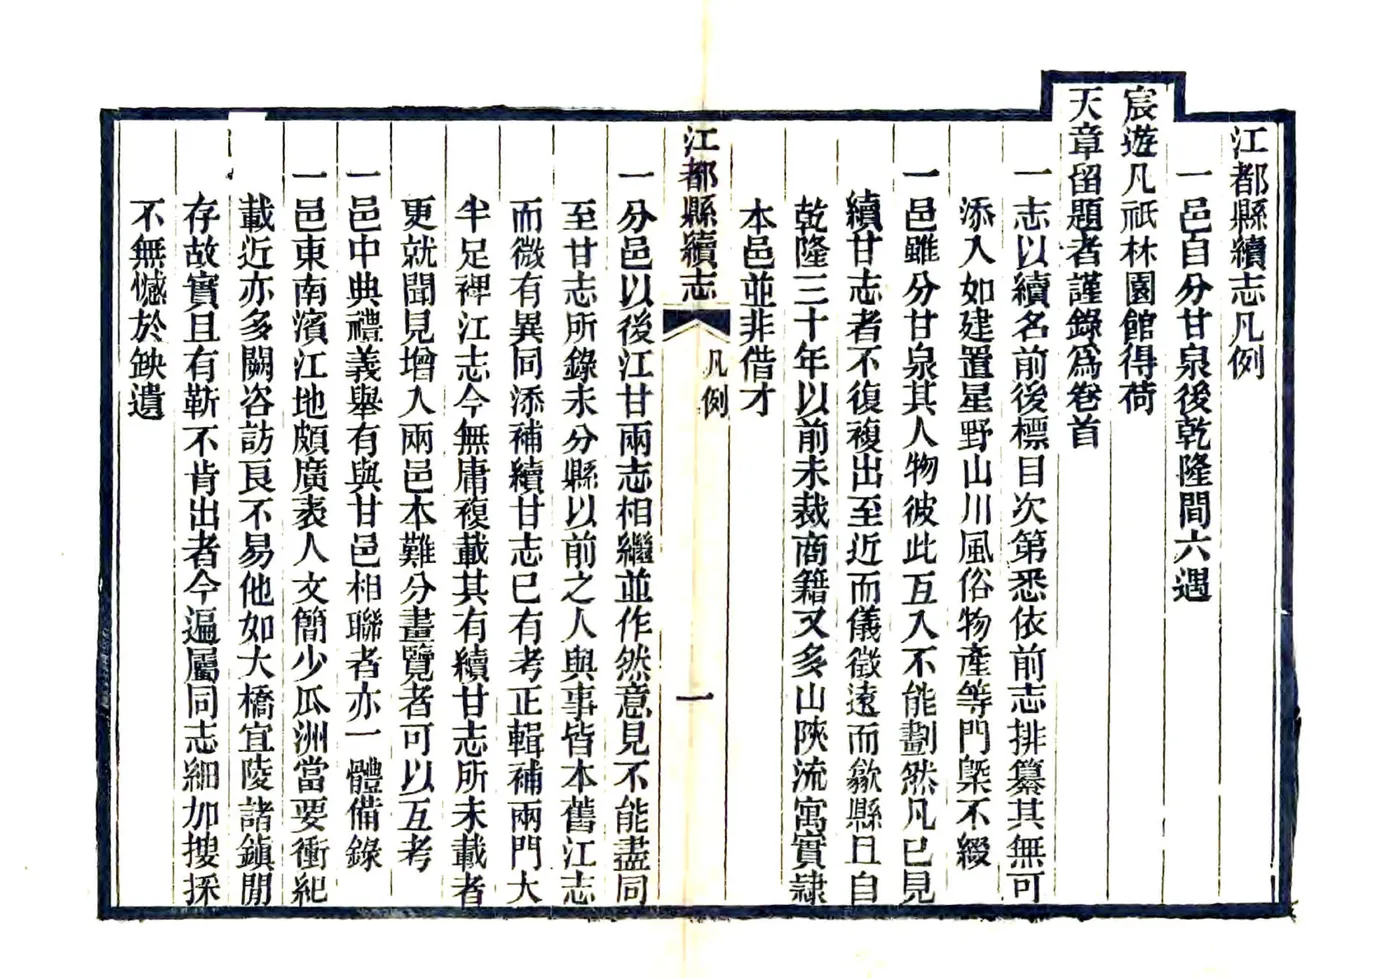 江都縣續志凡例
一邑自分甘泉後乾隆間六遇
宸遊凡祇林園館得荷
天章留題者謹錄為卷首
一志以續名前後標目次第悉依前志排纂其無可
添入如建置星野山川風俗物產等門槩不綴
一邑雖分甘泉其人物彼此互入不能劃然凡已見
續甘志者不復複出至近而儀徵遠而歙縣且自
乾隆三十年以前未裁商籍又多山陝流寓實隸
本邑並非借才
江都縣續志
凡例
一
一分邑以後江甘兩志相繼並作然意見不能盡同
至甘志所錄未分縣以前之人與事皆本舊江志
而微有異同添補續甘志已有考正輯補兩門大
半足裨江志今無庸複載其有續甘志所未載者
更就聞見增入兩邑本難分畫覽者可以互考
一邑中典禮義舉有與甘邑相聯者亦一體備錄
一邑東南濱江地頗廣袤人文簡少瓜洲當要衝紀
載近亦多闕咨訪良不易他如大橋宜陵諸鎮閒
存故實且有靳不肯出者今遍屬同志細加搜採
不無憾於缺遺